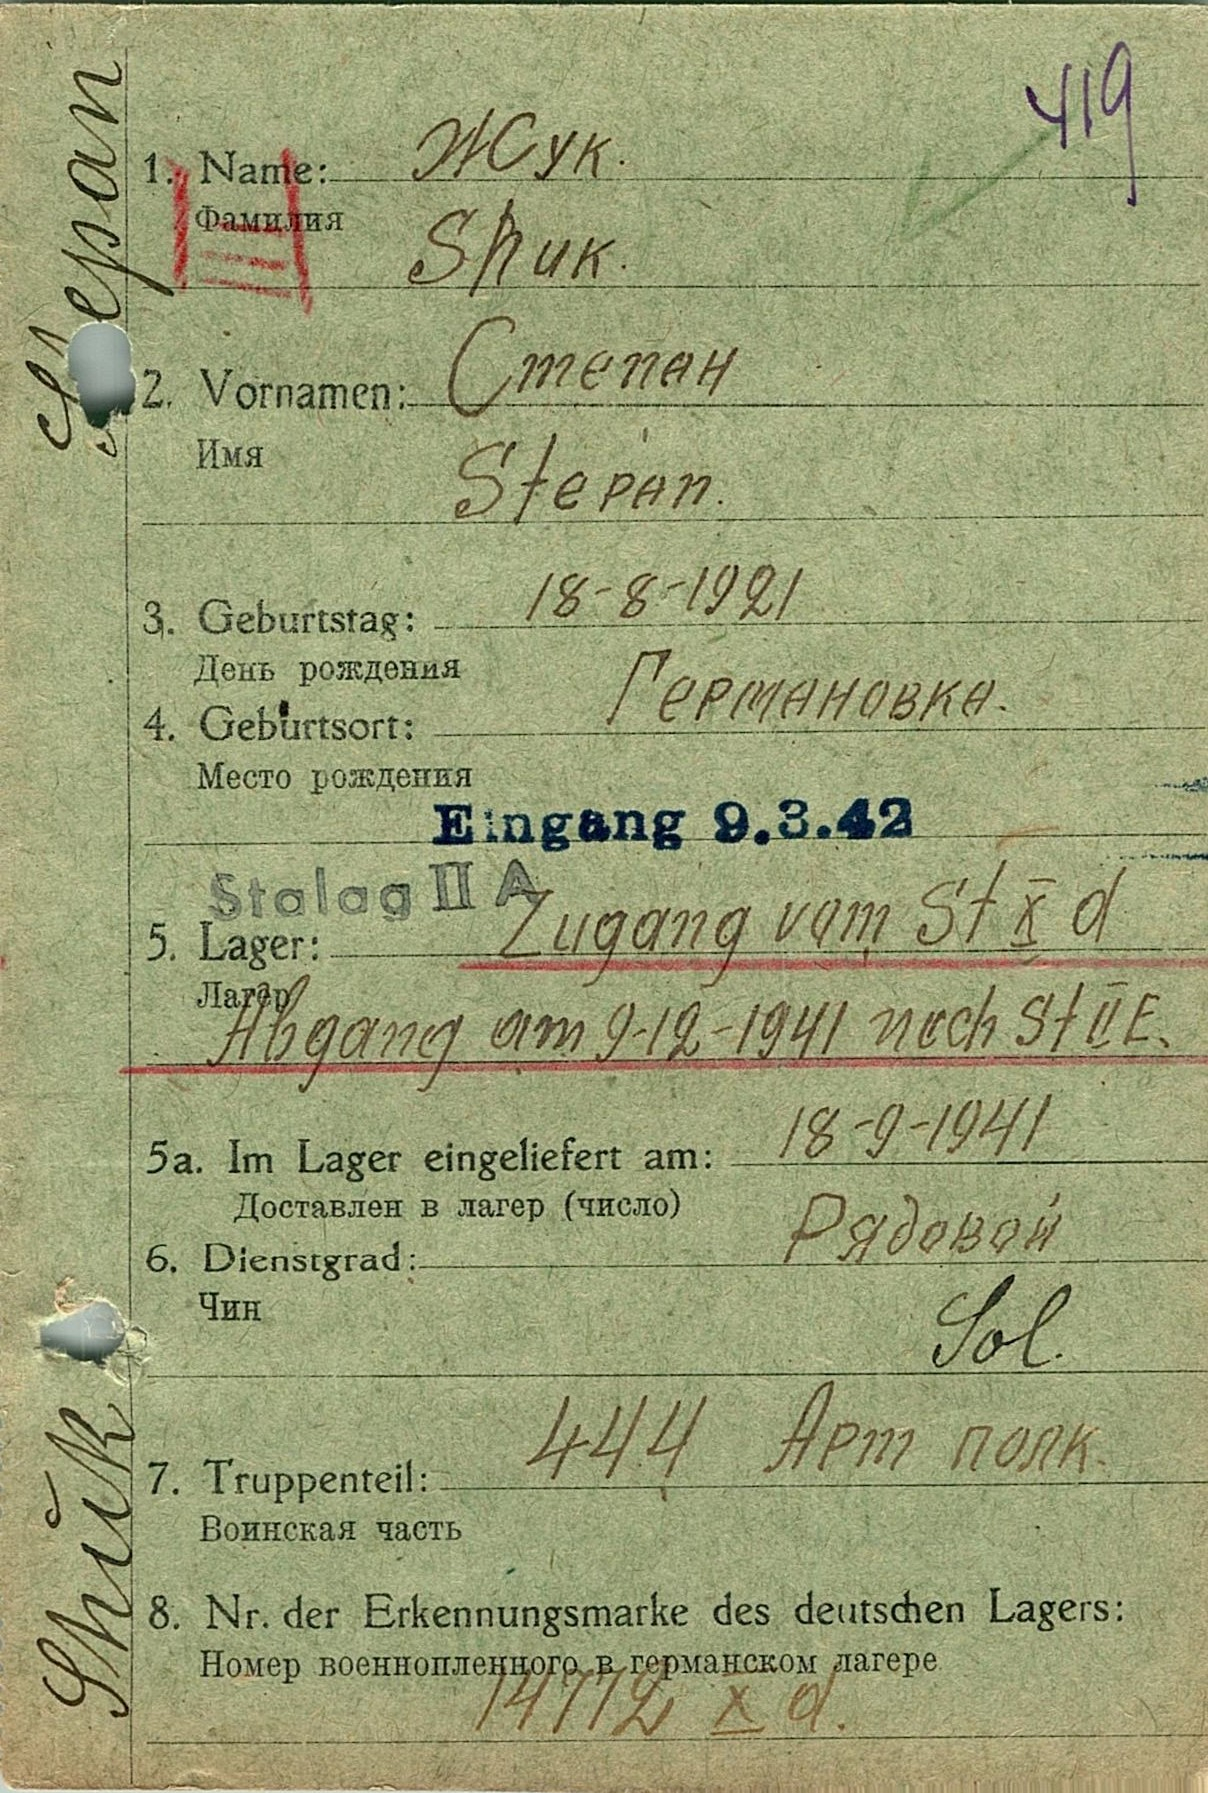 419
1. Name: Жук.
Фамилия
Shuk.
2. Vornamen: Степан
Имя
Stepan.
3. Geburtstag: 18-8-1921
День рождения
4. Geburtsort: Германовка.
Место рождения
Eingang 9.3.42
Stalag II A
5. Lager: Zugang vom St X d
Лагер
Abgang am 9-12-1941 nach St II E.
5a. Im Lager eingeliefert am: 18-9-1941
Доставлен в лагер (число)
6. Dienstgrad: Рядовой
Чин
Sol.
7. Truppenteil: 444 Арт полк.
Воинская часть
8. Nr. der Erkennungsmarke des deutschen Lagers:
Номер военнопленного в германском лагере
14772 X d.
Shuk Stepan